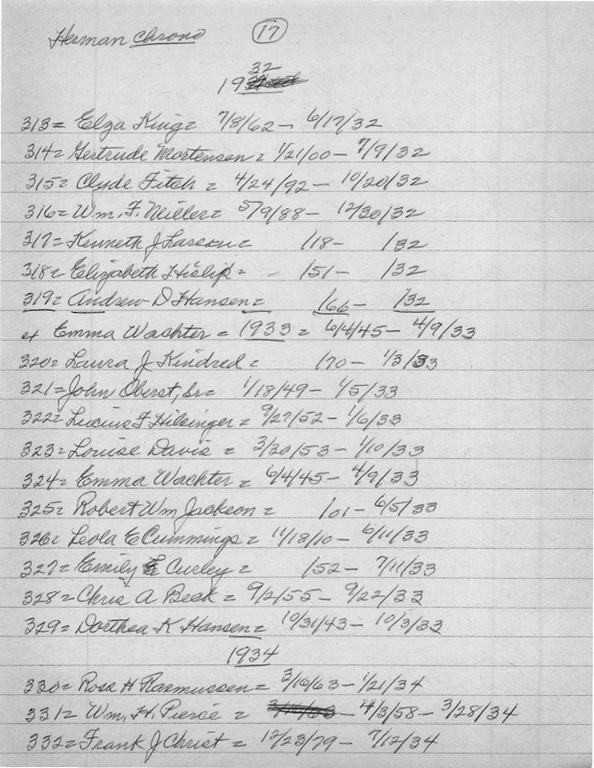 Herman Chrono 17
1932
313= Elza King= 7/8/62 - 6/17/32
314= Gertrude Mortensen= 1/21/00 - 7/9/32
315= Clyde Fitch = 4/24/92 - 10/20/32
316= Wm. F. Neiller= 5/9/88 - 12/30/32
317= Kenneth J Larsen= /18 - /32
318= Elizabeth Hislip= - /51 - /32
319= Andrew D Hansen= /66 - /32
ex Emma Wachter = 1933 = 6/4/45 - 4/9/33
320= Laura J Kindred = /70 - 1/3/33
321= John Oberst, Sr= 1/18/49 - 1/5/33
322= Lucius F Hilsinger = 9/27/52 - 1/6/33
323= Louise Davis = 3/20/53 - 1/10/33
324= Emma Wachter = 6/4/45 - 4/9/33
325= Robert Wm Jackson = /01 - 6/5/33
326= Leola E Cummings = 11/18/10 - 6/11/33
327= Emily E Curley = /52 - 7/11/33
328= Chris A Beck = 9/2/55 - 9/22/33
329= Dorthea K Hansen = 10/31/43 - 10/3/33
1934
330= Rosa H Rasmussen= 3/16/63 - 1/21/34
331= Wm. H. Pierce = - 4/3/58 - 3/28/34
332= Frank J Christ = 12/23/79 - 7/12/34